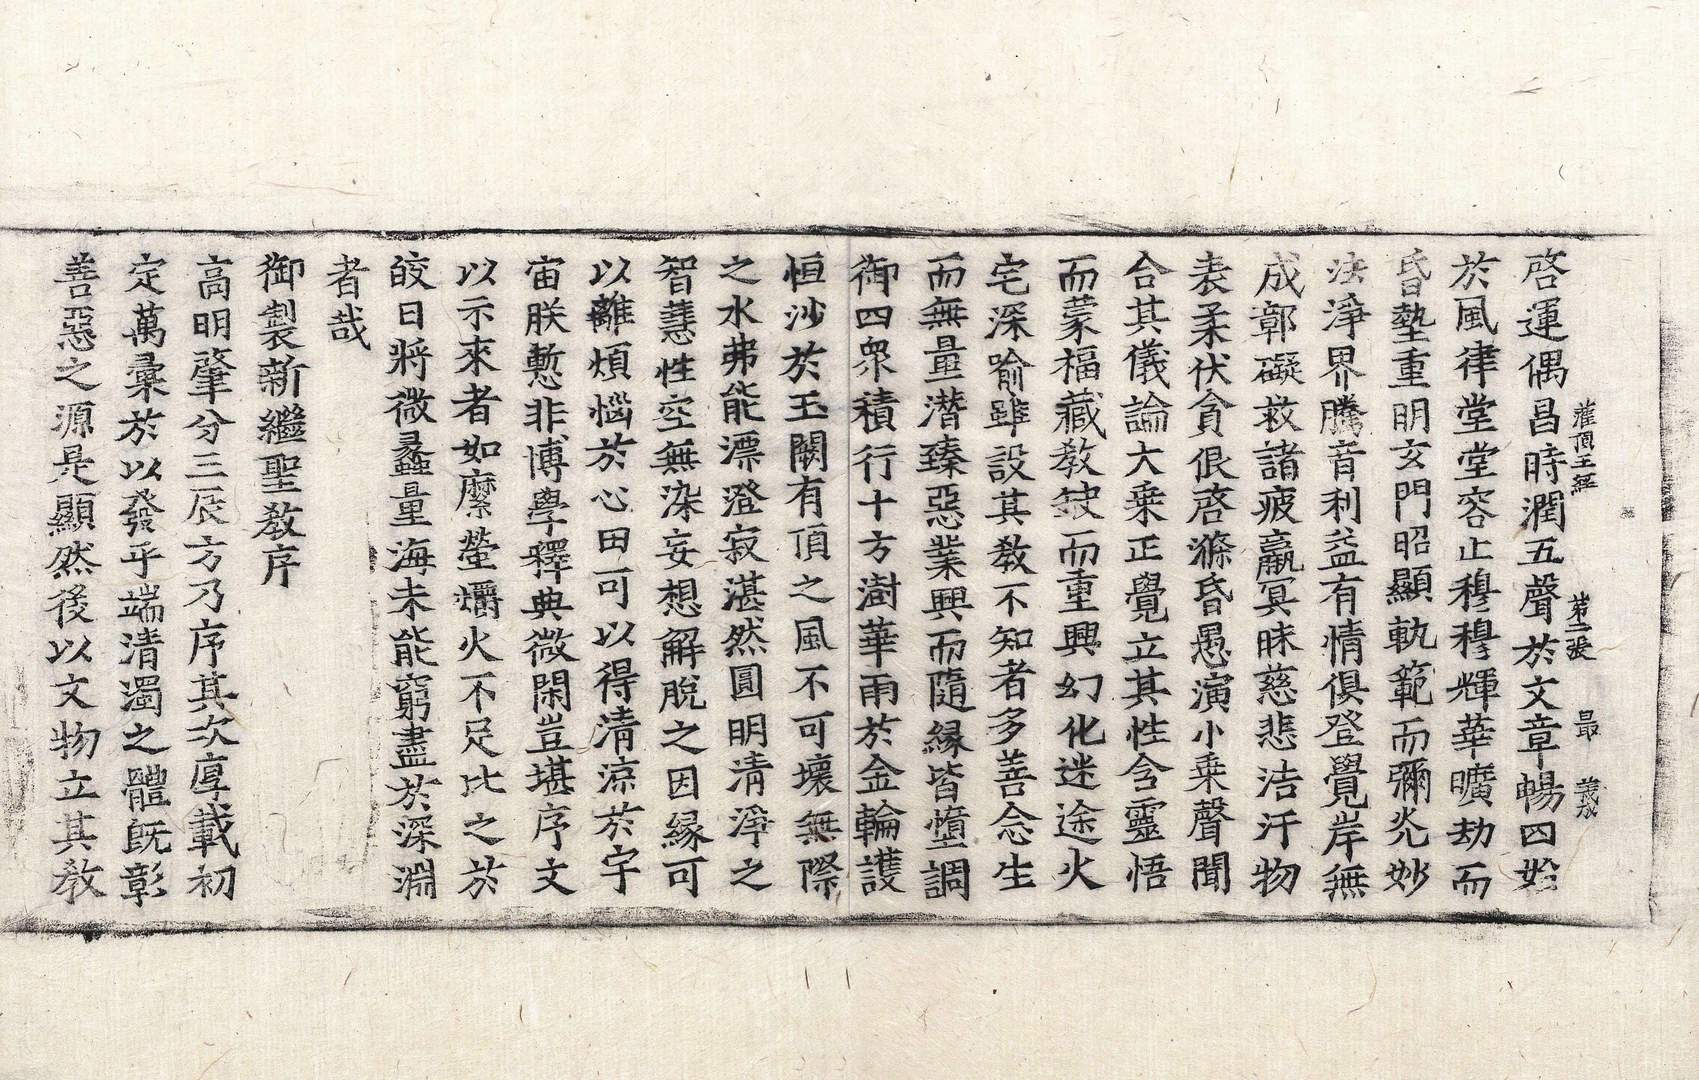 灌頂王經 第二張 最 義成
啓運偶昌時潤五聲於文章暢四始
於風律堂堂容止穆穆輝華曠劫而
昏墊重明玄門昭顯軌範而彌光妙
法淨界騰音利益有情俱登覺岸無
成鄣礙救諸疲羸冥昧慈悲浩汗物
表柔伏貪佷啓滌昏愚演小乗聲聞
合其儀論大乗正覺立其性含靈悟
而蒙福藏教缺而重興幻化迷途火
宅深喻雖設其教不知者多善念生
而無量潜臻惡業興而隨縁皆墮調
御四衆積行十方澍華雨於金輪護
恒沙於玉闕有頂之風不可壞無際
之水弗能漂澄寂湛然圓明清淨之
智慧性空無染妄想解脫之因縁可
以離煩惱於心田可以得清涼於宇
宙朕慙非博學釋典微閑豈堪序文
以示來者如縻螢爝火不足比之於
皎日將微蠡量海未能窮盡於深淵
者哉
御製新繼聖教序
高明肇分三辰方乃序其次厚載初
定萬彙於以發乎端清濁之體既彰
善惡之源是顯然後以文物立其教